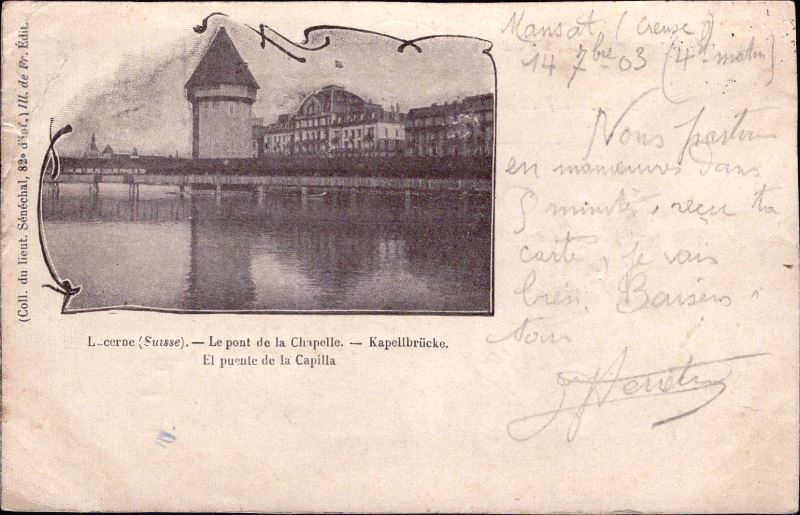 (Coll. du lieut. Sénéchal, 82e d'inf.) Ill. de Pr. Edit.
Lucerne (Suisse). — Le pont de la Chapelle. — Kapellbrücke.
El puente de la Capilla
Mansat (Creuse)
14 7bre 03 (4h matin)
Nous partons
en manœuvres dans
5 minutes, reçu ta
carte, je vais
bien. Baisers à
tous